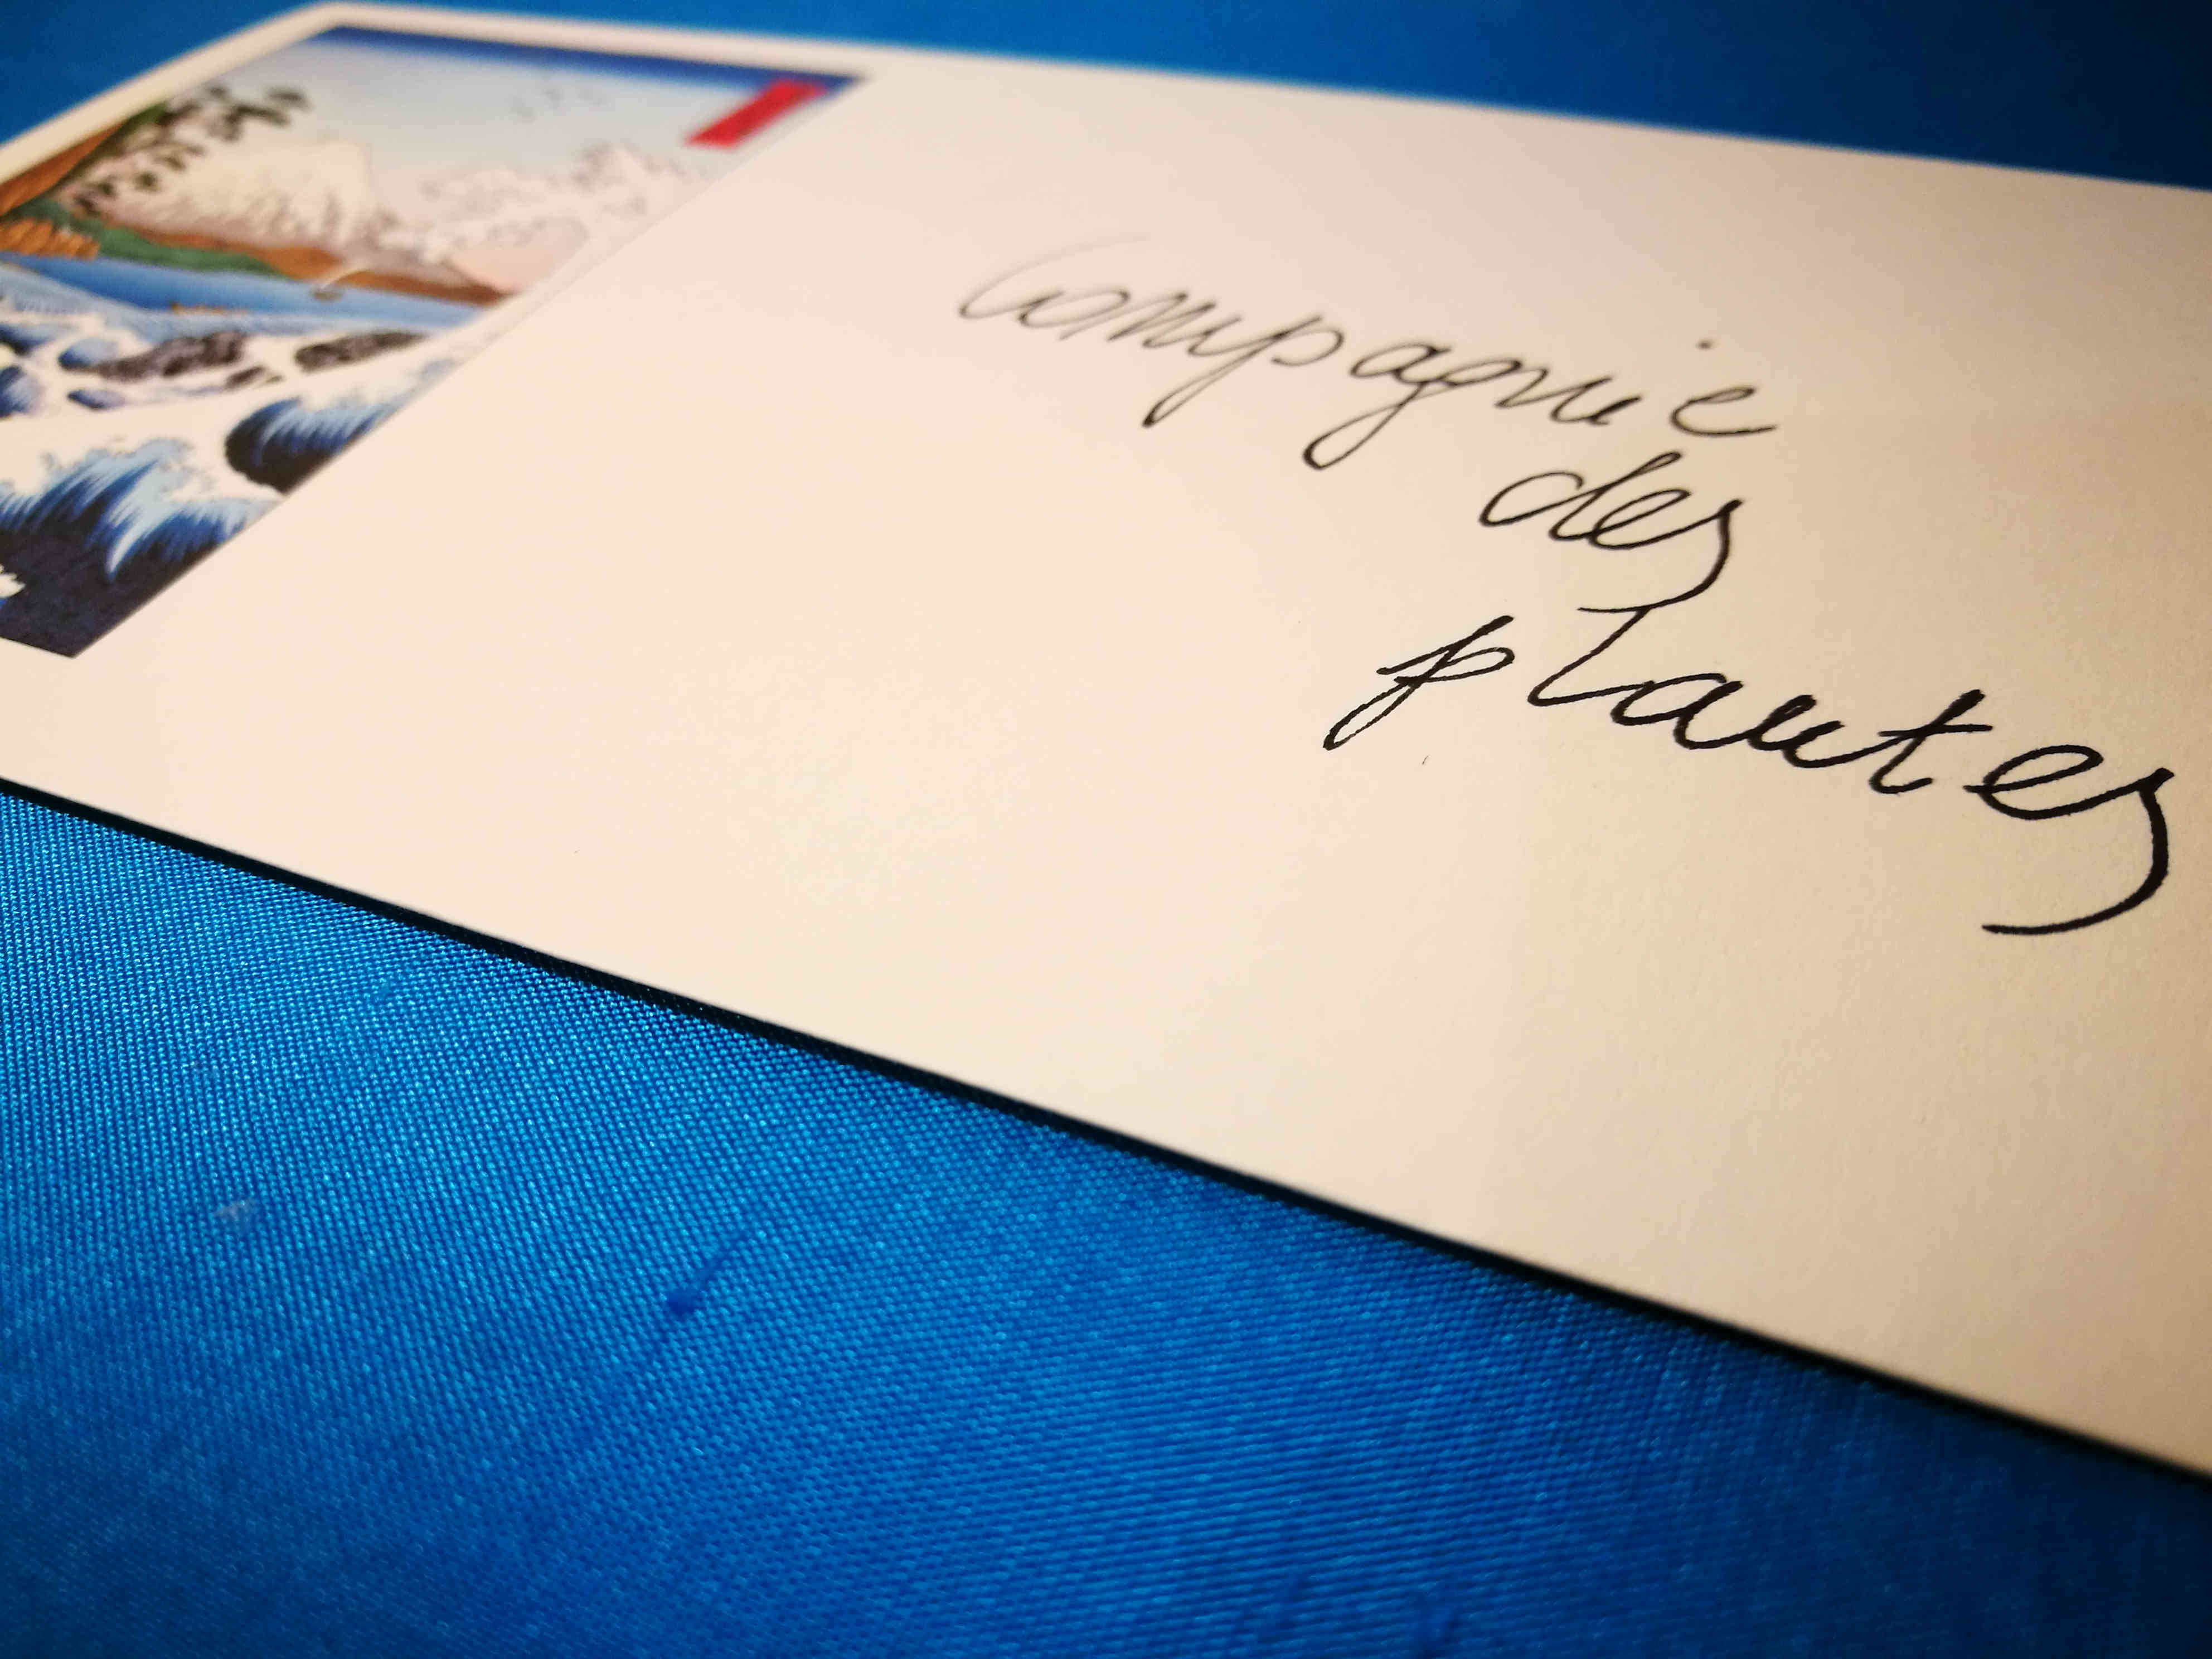 Compagnie
des
plantes